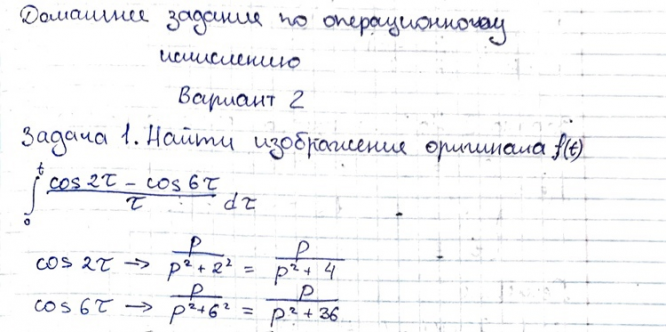 Домашнее задание по операционному
исчислению
Вариант 2
Задача 1. Найти изображение оригинала f(t)
∫₀ᵗ (cos 2τ - cos 6τ)/τ dτ
cos 2τ → p/(p² + 2²) = p/(p² + 4)
cos 6τ → p/(p² + 6²) = p/(p² + 36)